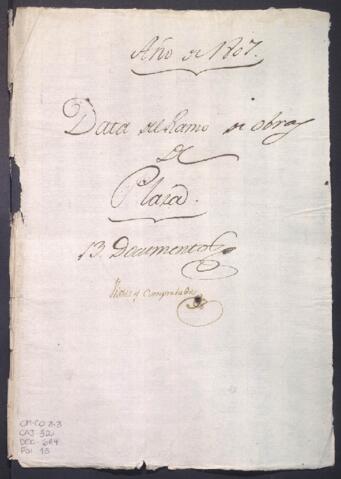 Año de 1807.
Data del Ramo de obras
De
Plaza.
13. Documentos
Vistos y Comprobados
CM-CO 3.3
CAJ - 32
DOC - 684
Fol 13